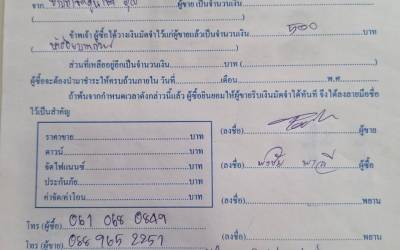 จาก ผู้ขาย เป็นจำนวนเงิน
( ) บาท
ข้าพเจ้า ผู้ซื้อได้วางเงินมัดจำไว้แก่ผู้ขายแล้วเป็นจำนวนเงิน 500 บาท
( )
ส่วนที่เหลืออยู่อีกเป็นจำนวนเงิน บาท
ผู้ซื้อจะต้องนำมาชำระให้ครบถ้วนภายใน วันที่ เดือน พ.ศ.
ถ้าพ้นจากกำหนดเวลาดังกล่าวนี้แล้ว ผู้ซื้อยินยอมให้ผู้ขายริบเงินมัดจำได้ทันที จึงได้ลงลายมือชื่อ
ไว้เป็นสำคัญ
ราคาขาย บาท
(ลงชื่อ) ผู้ขาย
ดาวน์ บาท
จัดไฟแนนซ์ บาท
(ลงชื่อ) ผู้ซื้อ
ประกันภัย บาท
ค่าจัด/ค่าโอน บาท
(ลงชื่อ) พยาน
โทร (ผู้ซื้อ) 061 068 0849
(ลงชื่อ) พยาน
โทร (ผู้ขาย) 088 965 2251